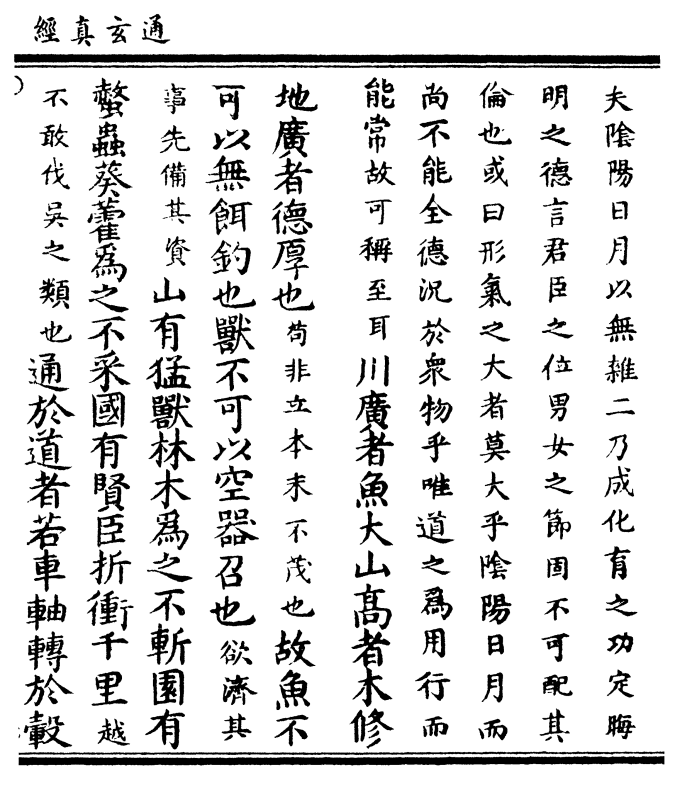 通玄真經
夫陰陽日月以無雜二乃成化育之功定晦
明之德言君臣之位男女之節固不可配其
倫也或曰形氣之大者莫大乎陰陽日月而
尚不能全德況於衆物乎唯道之爲用行而
能常故可稱至耳川廣者魚大山高者木修
地廣者德厚也苟非立本末不茂也故魚不
可以無餌釣也獸不可以空器召也欲濟其
事先備其資山有猛獸林木爲之不斬園有
螫蟲葵藿爲之不采國有賢臣折衝千里越
不敢伐吳之類也通於道者若車軸轉於轂